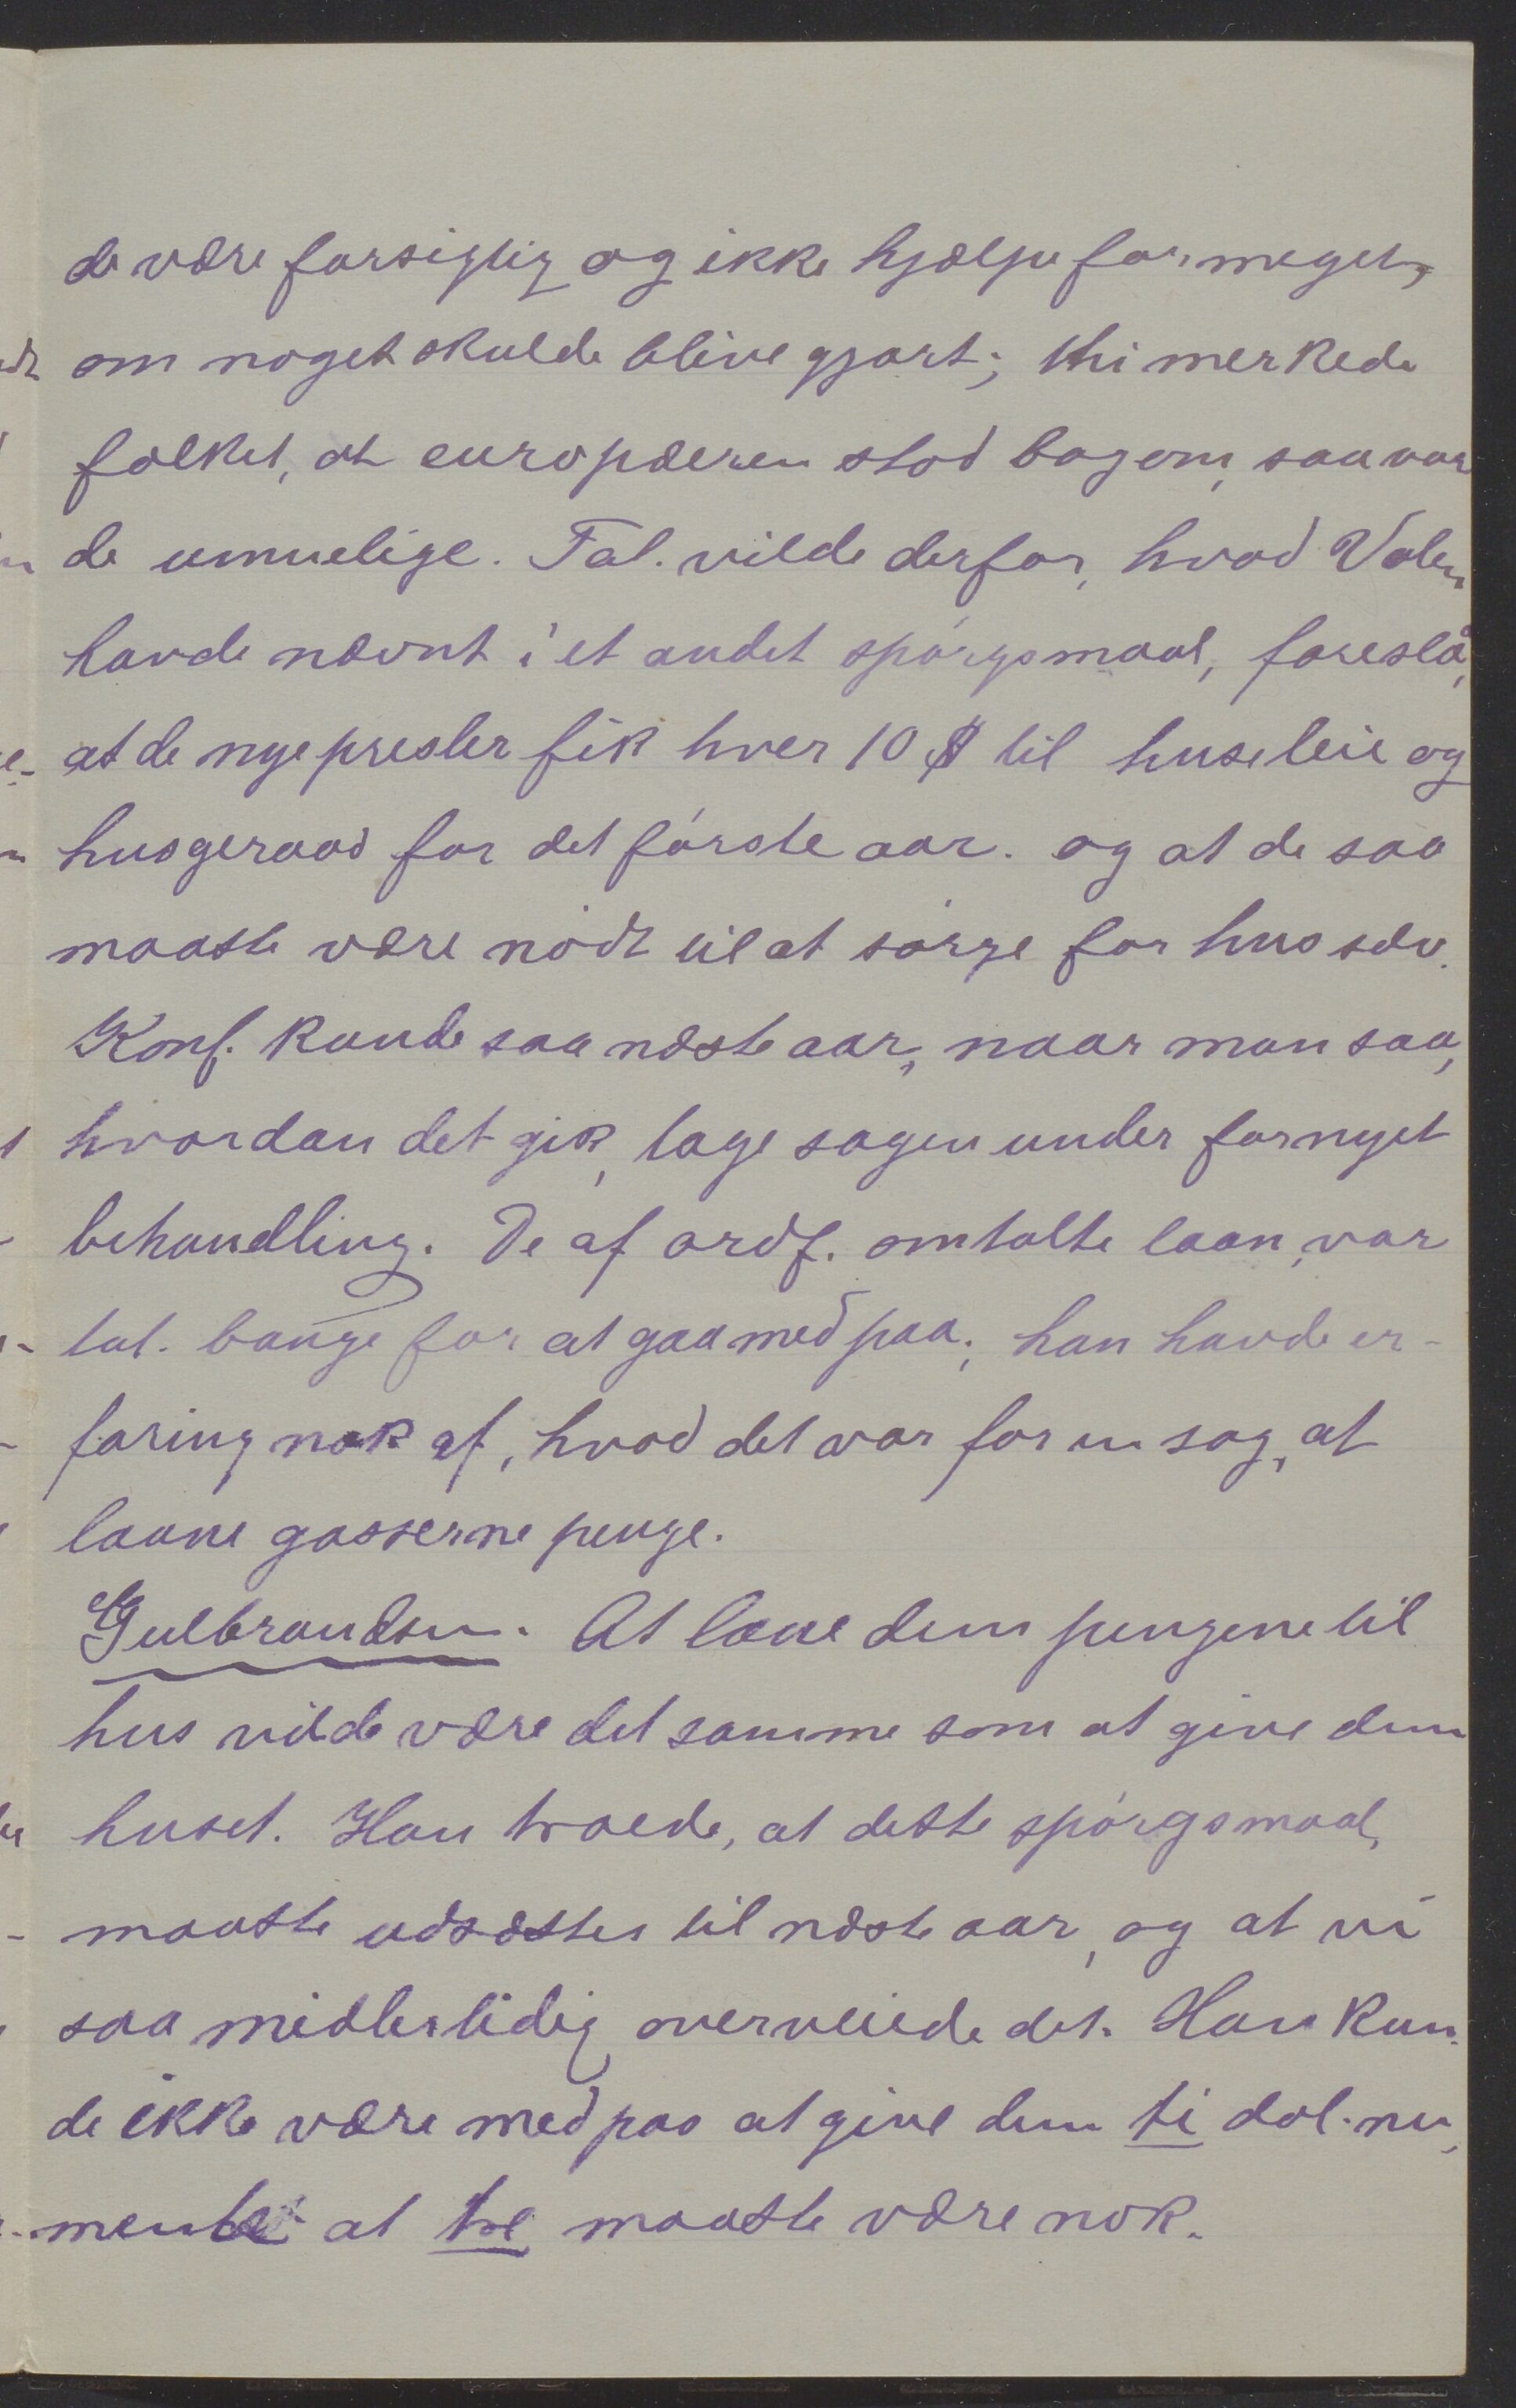 de være forsigtig og ikke hjælpe for meget,
om noget skulde blive gjort; thi merkede
folket, at europæeren stod bagom, saa var
de umuelige. Tal. vilde derfor, hvad Valen
havde nævnt i et andet spørgsmaal, foreslå,
at de nye prester fik hver 10 $ til huseleie og
husgeraad for det første aar. og at de saa
maatte være nødt til at sørge for hus selv.
Konf. kunde saa næste aar, naar man saa,
hvordan det gik, tage sagen under fornyet
behandling. De af ordf. omtalte laan, var
tal. bange for at gaa med paa; han havde er-
faring nok af, hvad det var for en sag, at
laane gasserne penge.
Gulbrandsen. At laane dem pengene til
hus vilde være det samme som at give dem
huset. Han troede, at dette spørgsmaal,
maatte udsættes til næste aar, og at vi
saa midlertidig overveiede det. Han kun-
de ikke være med paa at give dem ti dol. nu,
mente at tre maatte være nok.